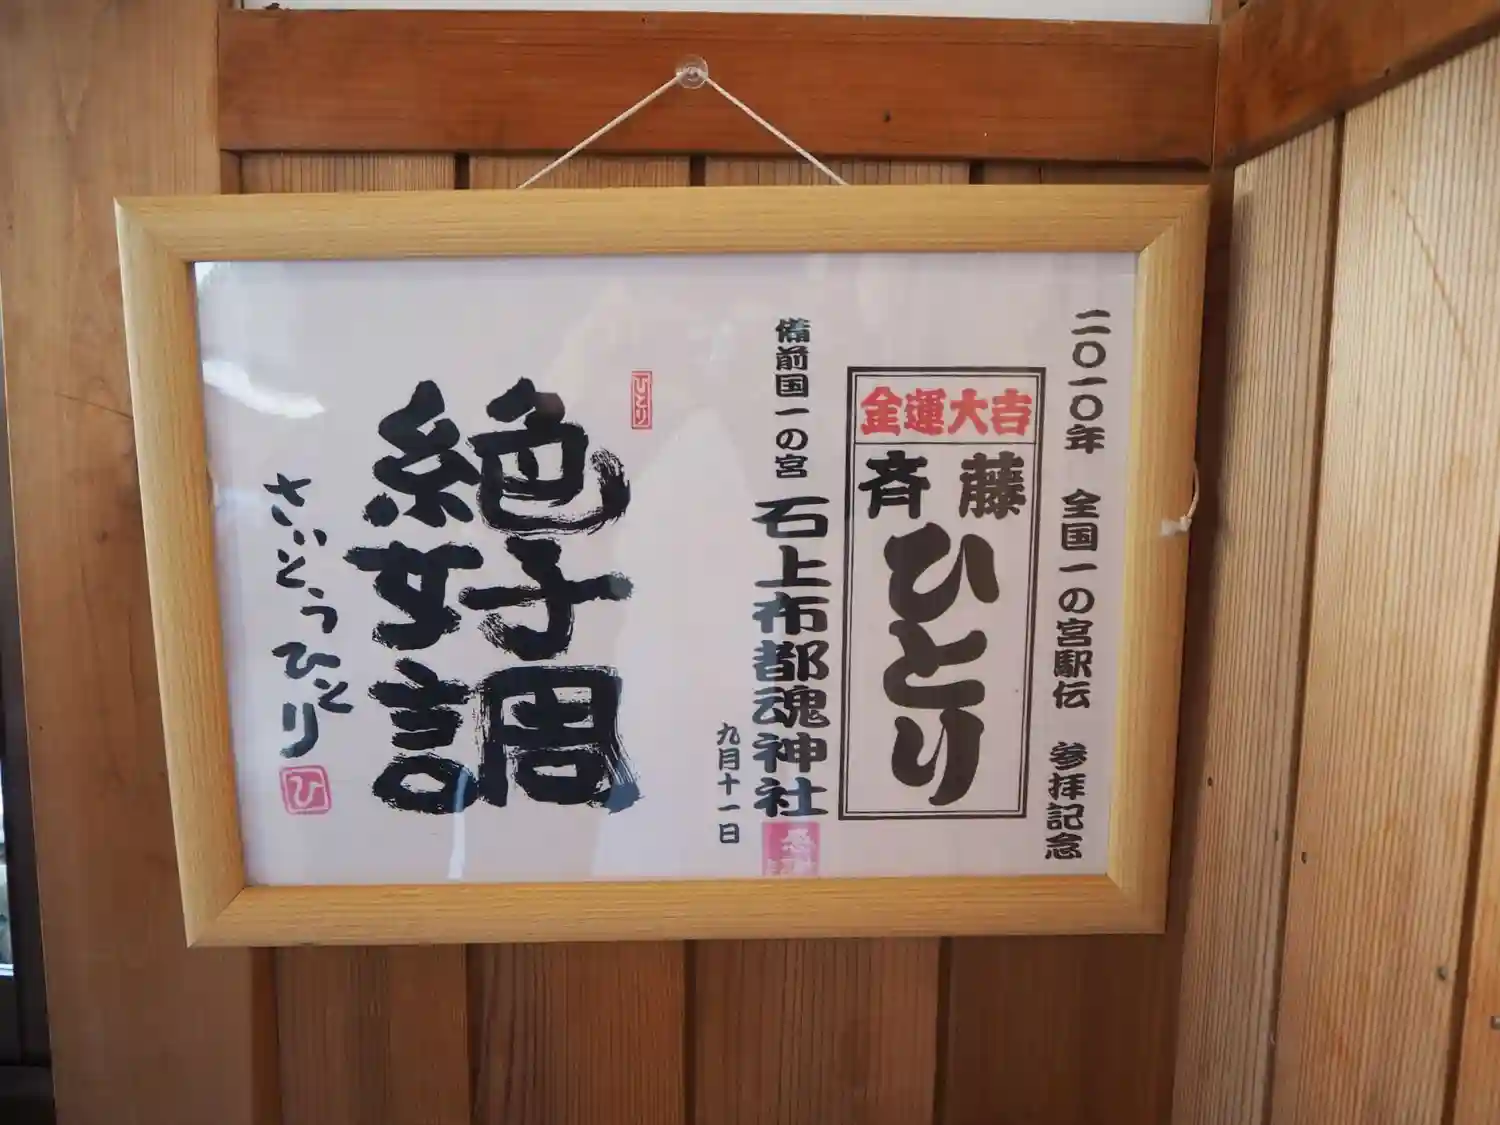 二〇一〇年 全国一の宮駅伝 参拝記念
金運大吉
斉藤
ひとり
備前国一の宮
石上布都魂神社
九月十一日
ひとり
絶好調
さいとうひとり
ひ